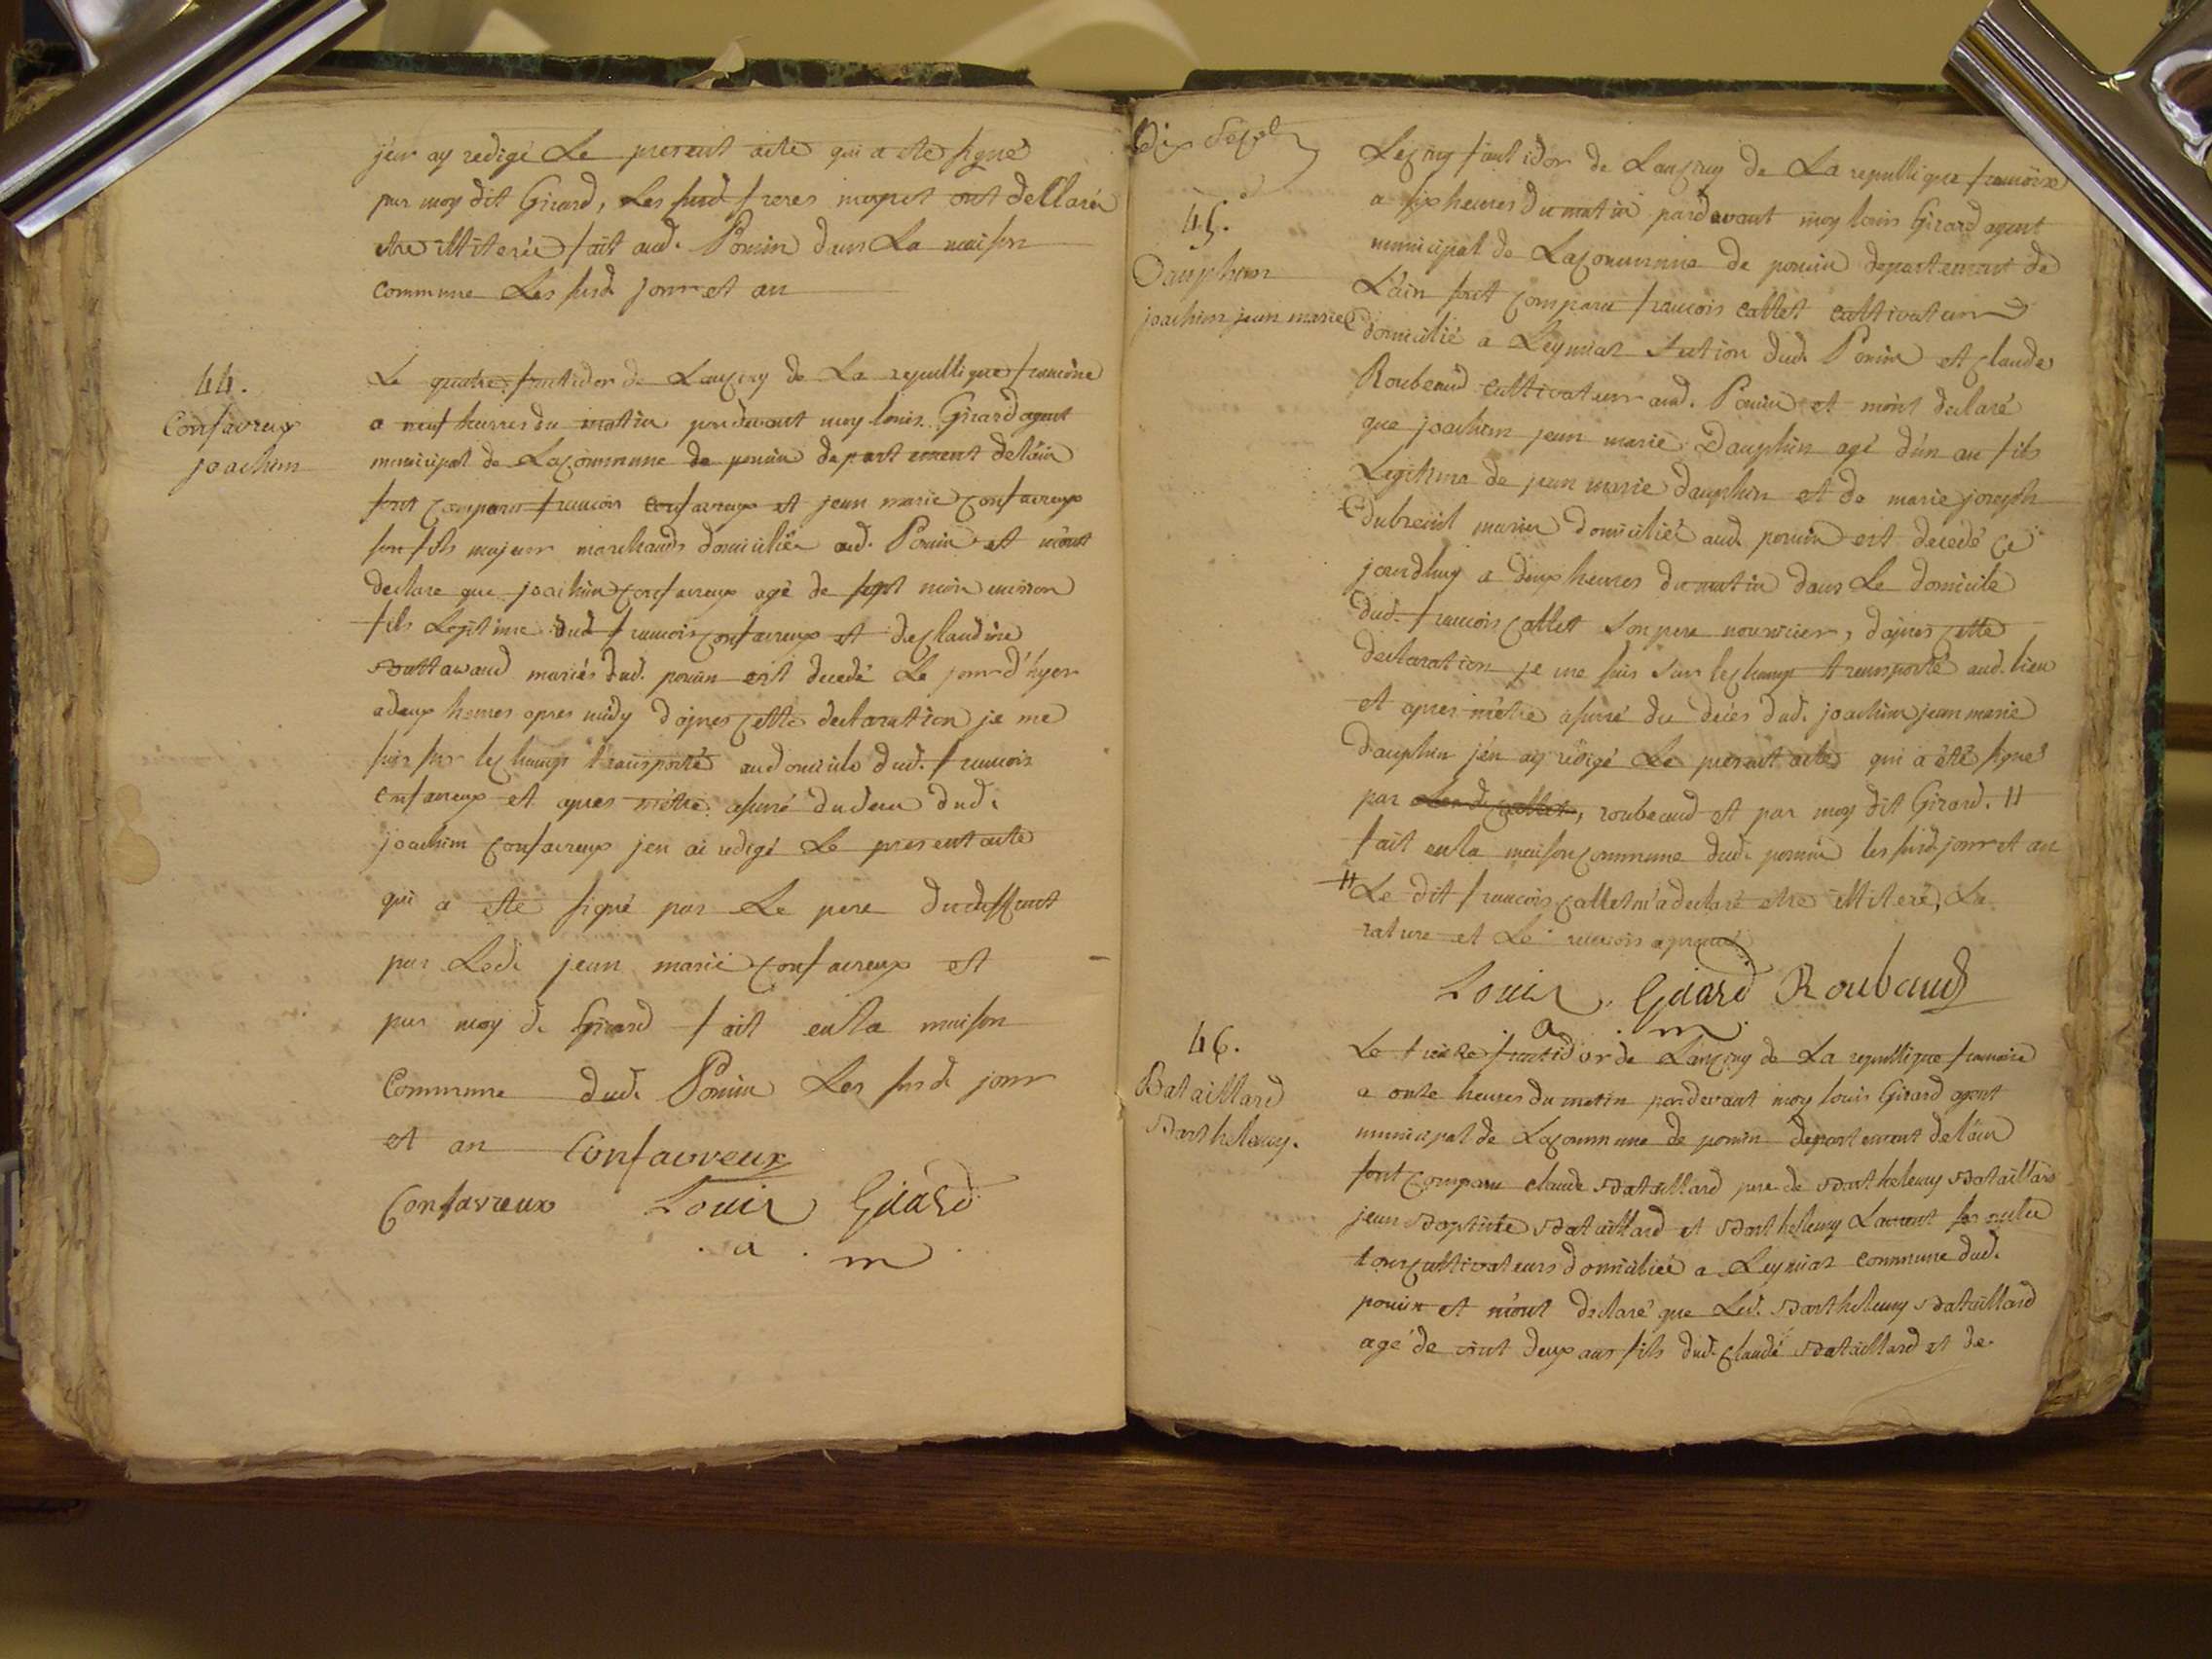 j'en ay redigé Le present acte qui a ete signé
par moy dit Girard, Les susd. freres ont dellarés
etre illiterée fait aud. Poncin dans La maison
commune Les susd. jour et an
44.
Confavreux
joachim
Le quatre fructidor de Lancinq de La republique francoise
a neuf heures du matin pardevant moy louis Girard agent
municipal de Lacommune de poncin departement delain
sont comparu francois confavreux et jean marie confavreux
son fils majeur marchands domiciliés aud. Poncin et m'ont
declare que joachim confavreux agé de sept mois environ
fils Legitime dud francois confavreux et de claudine
mariés dud. poncin est decedé Le jour d'hyer
a deux heures apres midy d'apres cette declaration je me
suis sur lechamp transporté audomicile dud. francois
confavreux et apres m'etre assuré du deces dud.
joachim confavreux jen ai redigé Le present acte
qui a ete signé par Le pere du deffunt
par Led. jean marie confavreux et
par moy d. Girard fait en la maison
Commune dud. Poncin Les susd. jour
et an Confavreux
Confavreux Louis Girard
a . m
Dix Sept
45.
Dauphin
joachim jean marie
Lecinq fructidor de Lancinq de La republique francoise
a six heures du matin pardevant moy louis Girard agent
municipal de Lacommune de poncin departement de
L'ain sont comparu francois callet cultivateur
domicilié a Leymiat section dud. Poncin et claude
Roubeaud cultivateur aud. Poncin et m'ont declaré
que joachim jean marie Dauphin agé d'un an fils
Legitime de jean marie dauphin et de marie joseph
dubreüil mariés domiciliés aud. poncin est decedé ce
jourdhuy a deux heures du matin dans Le domicile
dud. francois callet son pere nourricier, d'apres cette
declaration je me suis sur lechamp transporté aud. lieu
et apres m'etre assuré du déces dud. joachim jean marie
Dauphin j'en ay rédigé Le present acte qui a été signé
par roubeaud et par moy dit Girard. ++
fait enla maison commune dud. poncin les susd. jour et an
++ Le dit francois callet m'a declaré etre illiteré, La
rature et Le renvois aprouvé
Louis Girard Roubaud
a . m.
46.
Bataillard
Barthelemy.
Le treize fructidor de Lancinq de La republique francoise
a onze heures du matin pardevant moy louis Girard agent
municipal de Lacommune de poncin departement delain
sont comparu claude Bataillard pere de Barthelemy Bataillard
jean Baptiste Bataillard et Barthelemy Laurent
tous cultivateurs domiciliés a Leymiat commune dud.
poncin et m'ont declaré que Led. Barthelemy Bataillard
agé de vint deux ans fils dud. claude Bataillard et de